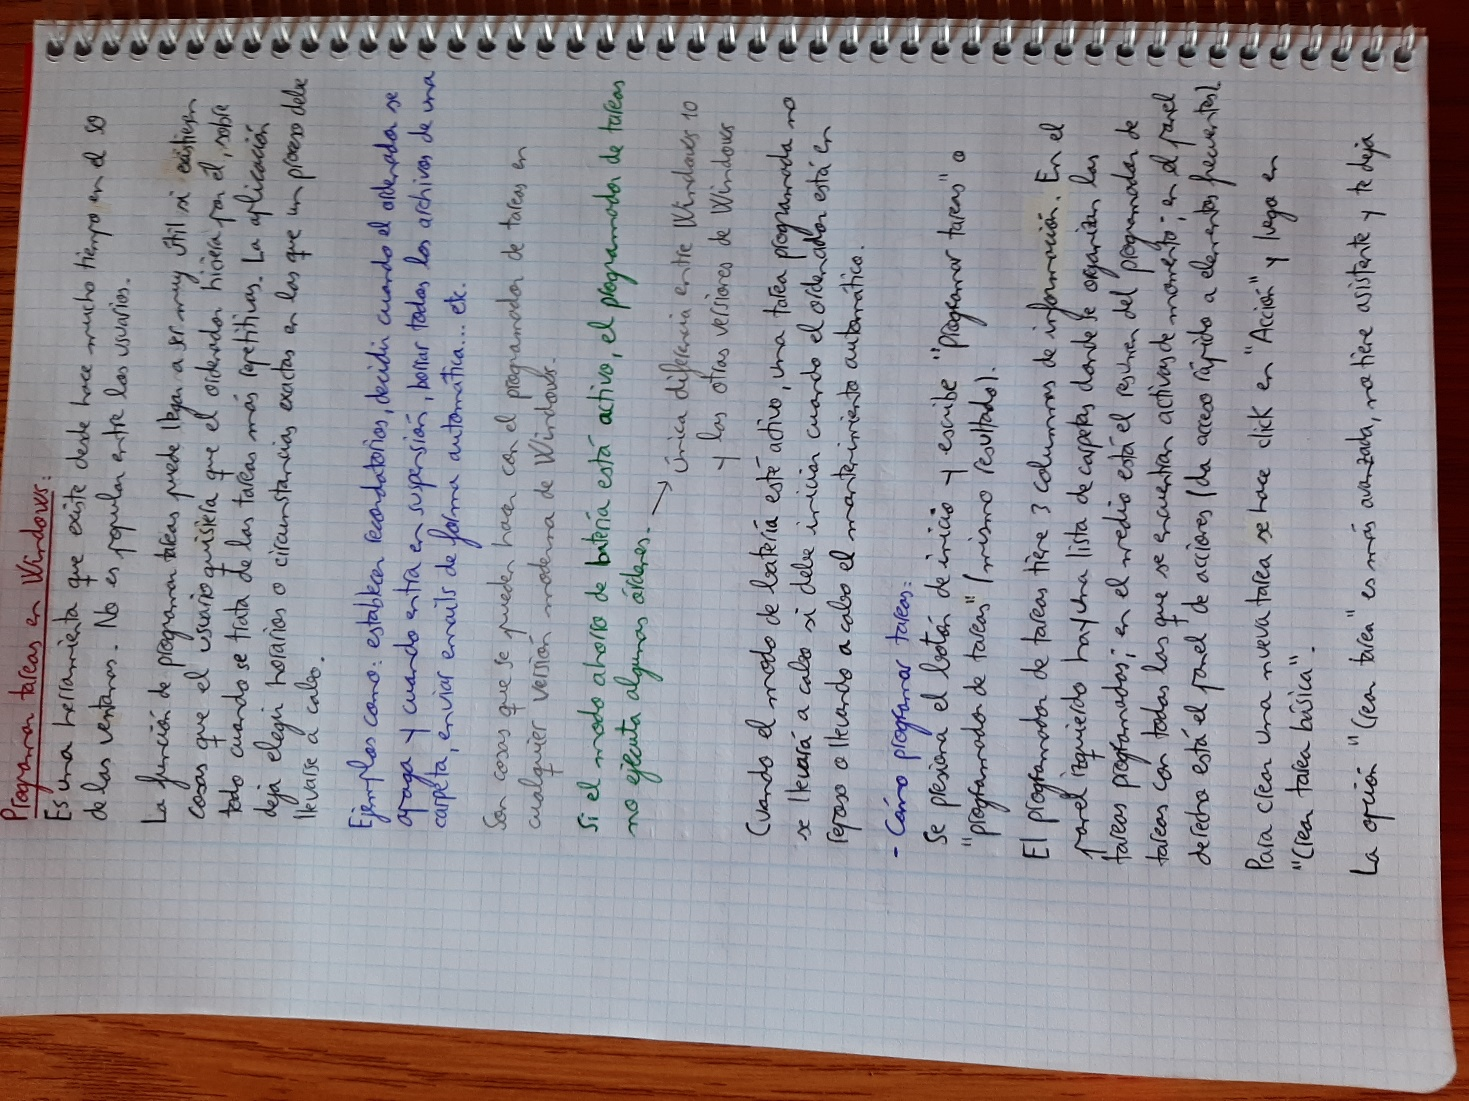 Programar tareas en Windows:
Es una herramienta que existe desde hace mucho tiempo en el SO
de las ventanas. No es popular entre los usuarios.
La función de programar tareas puede llegar a ser muy útil si existiesen
cosas que el usuario quisiera que el ordenador hiciera por él, sobre
todo cuando se trata de las tareas más repetitivas. La aplicación
deja elegir horarios o circunstancias exactas en las que un proceso debe
llevarse a cabo.
Ejemplos como: establecer recordatorios, decidir cuando el ordenador se
apaga y cuando entra en suspensión, borrar todos los archivos de una
carpeta, enviar emails de forma automática... etc.
Son cosas que se pueden hacer con el programador de tareas en
cualquier versión moderna de Windows.
Si el modo ahorro de batería está activo, el programador de tareas
no ejecuta algunas órdenes. → única diferencia entre Windows 10
y las otras versiones de Windows
Cuando el modo de batería esté activo, una tarea programada no
se llevará a cabo si debe iniciar cuando el ordenador está en
reposo o llevando a cabo el mantenimiento automático.
- Cómo programar tareas:
Se presiona el botón de inicio y escribe "programar tareas" o
"programador de tareas" (mismo resultado).
El programador de tareas tiene 3 columnas de información. En el
panel izquierdo hay una lista de carpetas donde se organizan las
tareas programadas; en el medio está el resumen del programador de
tareas con todas las que se encuentran activas de momento; en el panel
derecho está el panel de acciones (da acceso rápido a elementos frecuentes).
Para crear una nueva tarea se hace click en "Acción" y luego en
"Crear tarea básica".
La opción "Crear tarea" es más avanzada, no tiene asistente y te deja